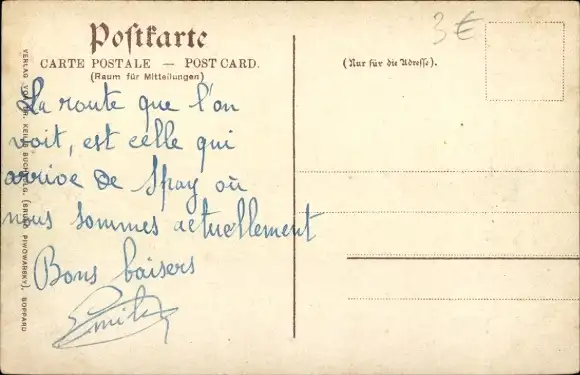 Postkarte
CARTE POSTALE — POST CARD.
(Raum für Mitteilungen)
(Nur für die Adresse).
3€
La route que l'on
voit, est celle qui
arrive de Spay où
nous sommes actuellement
Bons baisers
Emile
VERLAG VON BUCHHDLG. (BRUNO PIWOWARSKY), BOPPARD